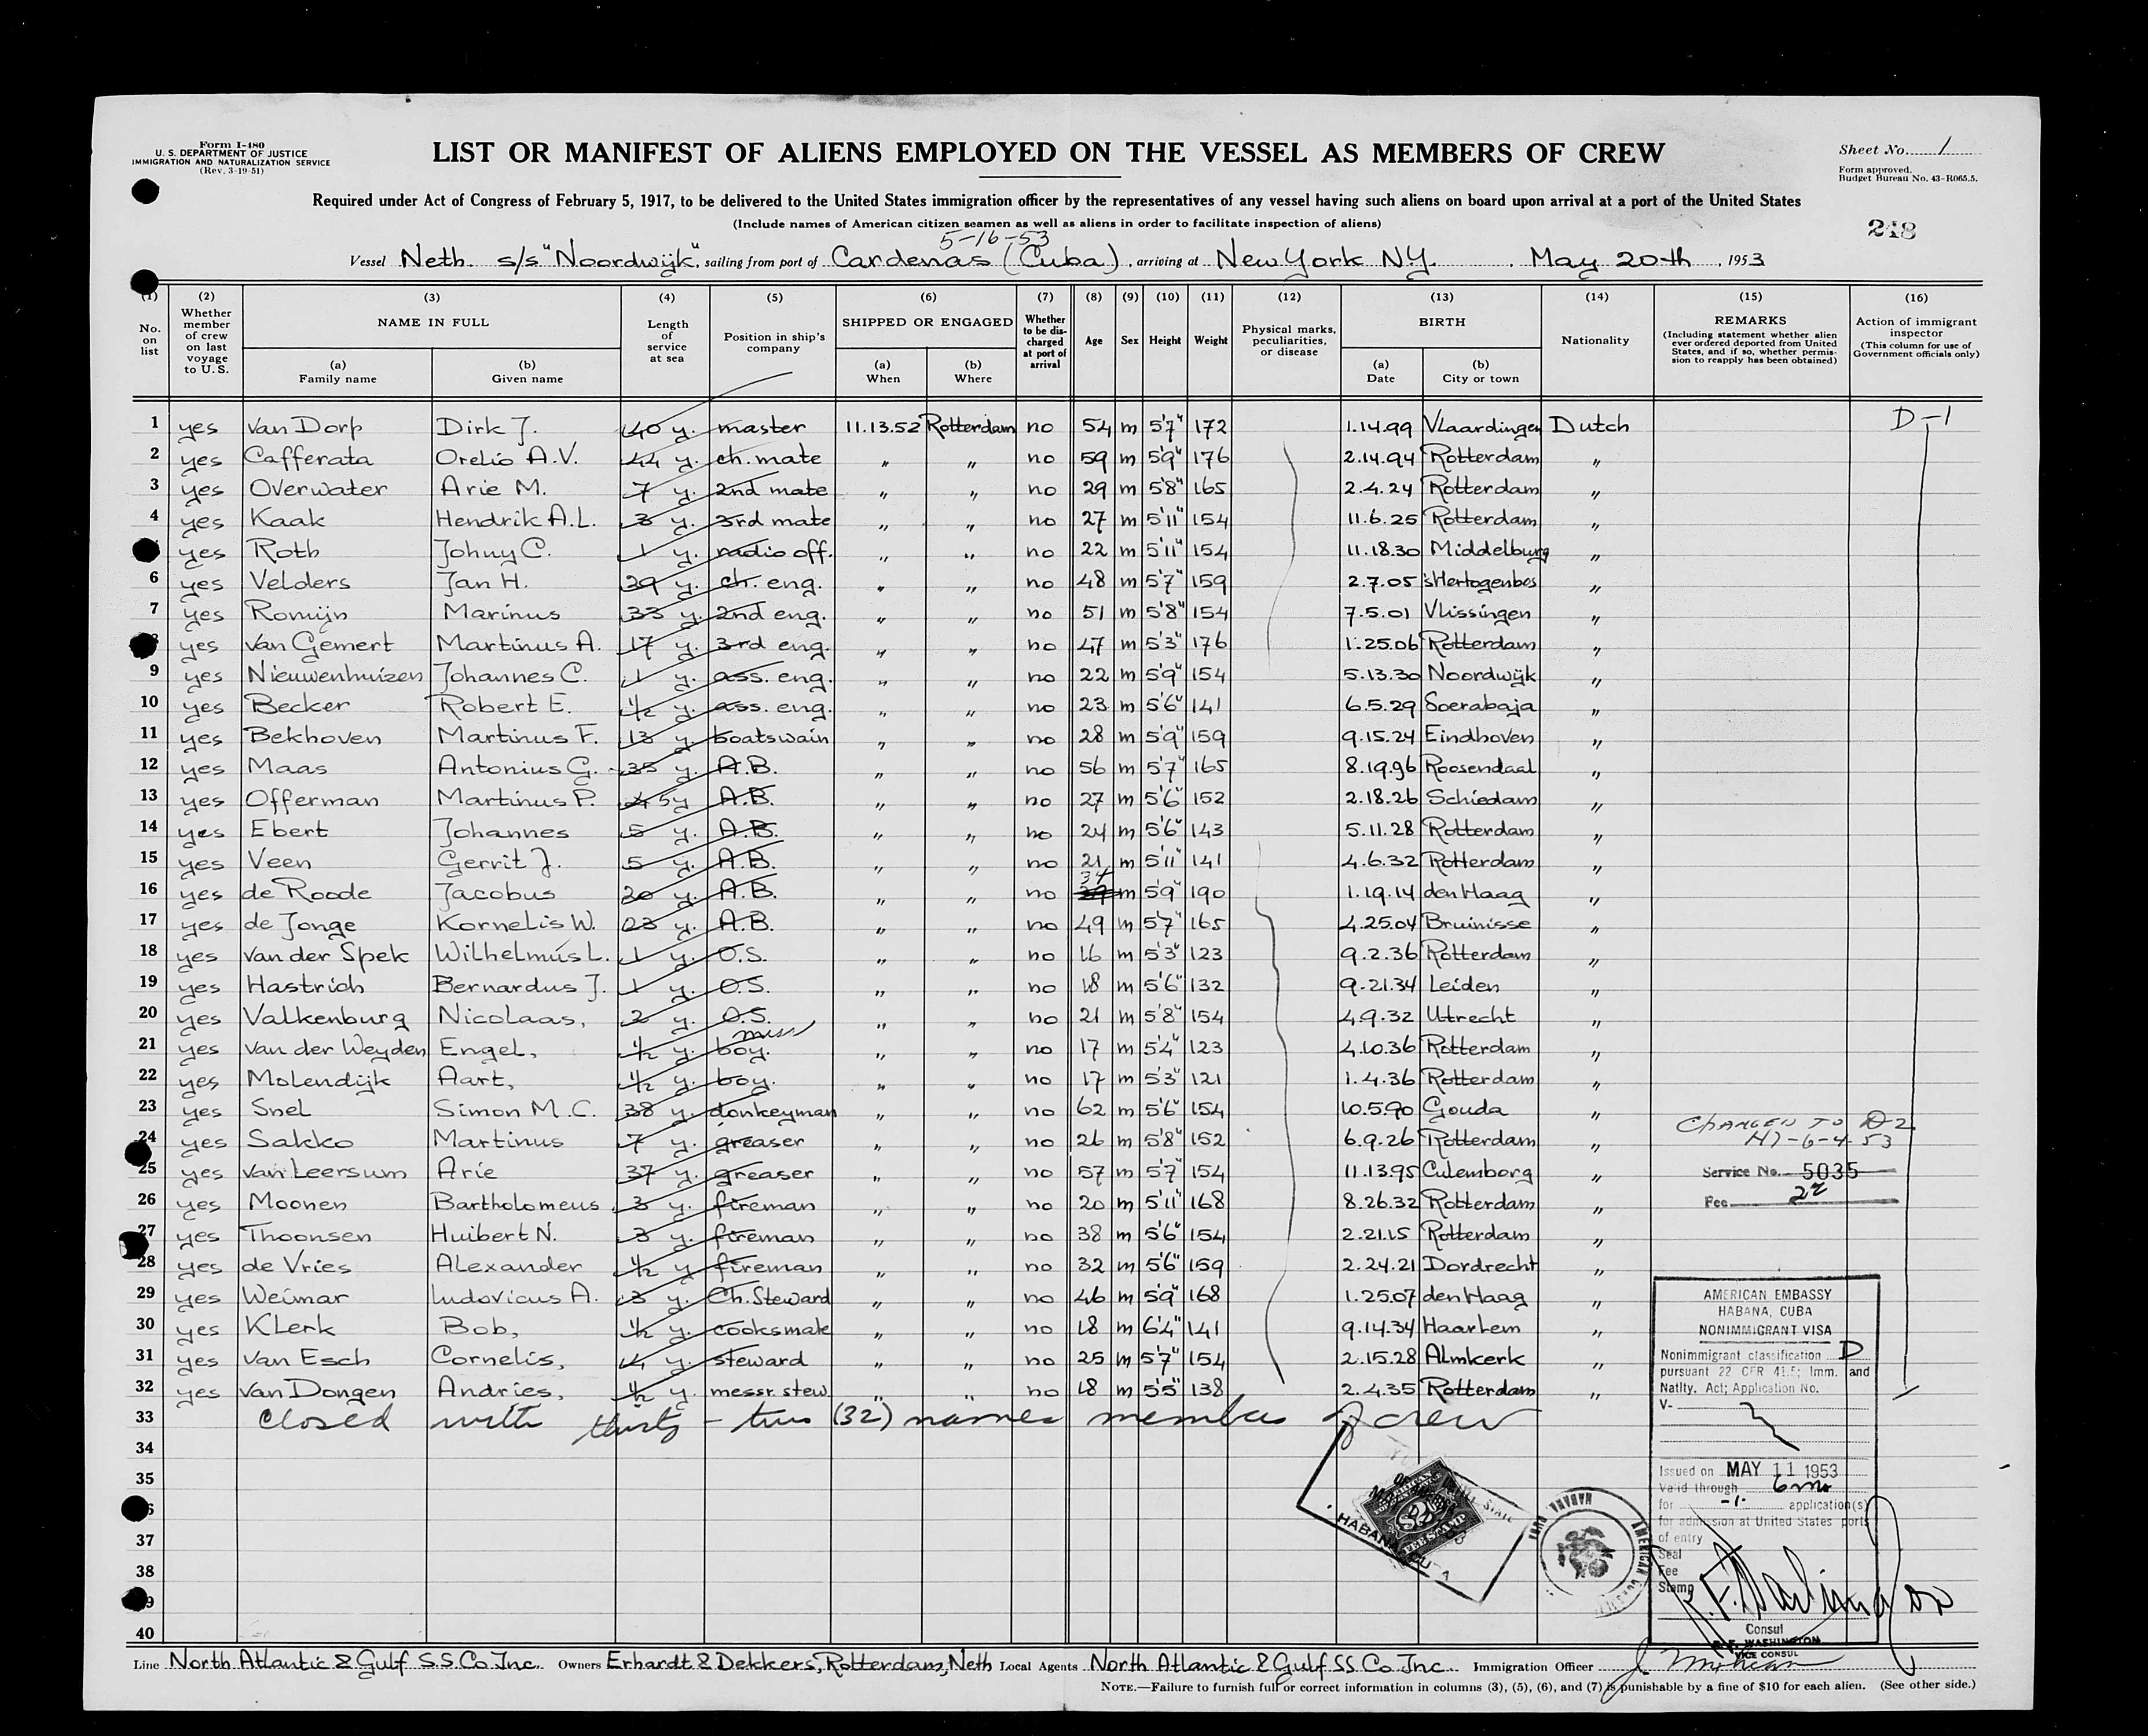 Form I-480
U. S. DEPARTMENT OF JUSTICE
IMMIGRATION AND NATURALIZATION SERVICE
(Rev. 3-19-51)
LIST OR MANIFEST OF ALIENS EMPLOYED ON THE VESSEL AS MEMBERS OF CREW
Sheet No. 1
Form approved.
Budget Bureau No. 43-R065.5.
Required under Act of Congress of February 5, 1917, to be delivered to the United States immigration officer by the representatives of any vessel having such aliens on board upon arrival at a port of the United States
(Include names of American citizen seamen as well as aliens in order to facilitate inspection of aliens)
248
5-16-53
Vessel Neth. s/s "Noordwijk", sailing from port of Cardenas (Cuba), arriving at New York N.Y. May 20th, 1953
(1) No. on list
(2) Whether member of crew on last voyage to U. S.
(3) NAME IN FULL (a) Family name (b) Given name
(4) Length of service at sea
(5) Position in ship's company
(6) SHIPPED OR ENGAGED (a) When (b) Where
(7) Whether to be discharged at port of arrival
(8) Age
(9) Sex
(10) Height
(11) Weight
(12) Physical marks, peculiarities, or disease
(13) BIRTH (a) Date (b) City or town
(14) Nationality
(15) REMARKS (Including statement whether alien ever ordered deported from United States, and if so, whether permission to reapply has been obtained)
(16) Action of immigrant inspector (This column for use of Government officials only)
1 yes van Dorp Dirk J. 40 y. master 11.13.52 Rotterdam no 54 m 5'7" 172 1.14.99 Vlaardingen Dutch D-1
2 yes Cafferata Orelio A.V. 44 y. ch. mate " " no 59 m 5'9" 176 2.14.94 Rotterdam "
3 yes Overwater Arie M. 7 y. 2nd mate " " no 29 m 5'8" 165 2.4.24 Rotterdam "
4 yes Kaak Hendrik A.L. 3 y. 3rd mate " " no 27 m 5'11" 154 11.6.25 Rotterdam "
yes Roth Johny C. 1 y. radio off. " " no 22 m 5'11" 154 11.18.30 Middelburg "
6 yes Velders Jan H. 29 y. ch. eng. " " no 48 m 5'7" 159 2.7.05 'sHertogenbos "
7 yes Romijn Marinus 33 y. 2nd eng. " " no 51 m 5'8" 154 7.5.01 Vlissingen "
yes van Gemert Martinus A. 17 y. 3rd eng. " " no 47 m 5'3" 176 1.25.06 Rotterdam "
9 yes Nieuwenhuizen Johannes C. 1 y. ass. eng. " " no 22 m 5'9" 154 5.13.30 Noordwijk "
10 yes Becker Robert E. 1/2 y. ass. eng. " " no 23 m 5'6" 141 6.5.29 Soerabaja "
11 yes Bekhoven Martinus F. 13 y. boatswain " " no 28 m 5'9" 159 9.15.24 Eindhoven "
12 yes Maas Antonius G. 35 y. A.B. " " no 56 m 5'7" 165 8.19.96 Roosendaal "
13 yes Offerman Martinus P. 5y A.B. " " no 27 m 5'6" 152 2.18.26 Schiedam "
14 yes Ebert Johannes 5 y. A.B. " " no 24 m 5'6" 143 5.11.28 Rotterdam "
15 yes Veen Gerrit J. 5 y. A.B. " " no 21 m 5'11" 141 4.6.32 Rotterdam "
16 yes de Roode Jacobus 20 y. A.B. " " no 34 m 5'9" 190 1.19.14 den Haag "
17 yes de Jonge Kornelis W. 23 y. A.B. " " no 49 m 5'7" 165 4.25.04 Bruinisse "
18 yes van der Spek Wilhelmus L. 1 y. O.S. " " no 16 m 5'3" 123 9.2.36 Rotterdam "
19 yes Hastrich Bernardus J. 1 y. O.S. " " no 18 m 5'6" 132 9-21.34 Leiden "
20 yes Valkenburg Nicolaas, 2 y. O.S. " " no 21 m 5'8" 154 4.9.32 Utrecht "
21 yes van der Weyden Engel, 1/2 y. mess boy. " " no 17 m 5'4" 123 4.10.36 Rotterdam "
22 yes Molendijk Aart, 1/2 y. boy. " " no 17 m 5'3" 121 1.4.36 Rotterdam "
23 yes Snel Simon M.C. 38 y. donkeyman " " no 62 m 5'6" 154 10.5.90 Gouda "
24 yes Sakko Martinus 7 y. greaser " " no 26 m 5'8" 152 6.9.26 Rotterdam "
CHANGED TO D-2
6-4-53
25 yes van Leersum Arie 37 y. greaser " " no 57 m 5'7" 154 11.13.95 Culemborg "
Service No. 5035
26 yes Moonen Bartholomeus 3 y. fireman " " no 20 m 5'11" 168 8.26.32 Rotterdam "
Fee
27 yes Thoonsen Huibert N. 3 y. fireman " " no 38 m 5'6" 154 2.21.15 Rotterdam "
28 yes de Vries Alexander 1/2 y fireman " " no 32 m 5'6" 159 2.24.21 Dordrecht "
29 yes Weimar Ludovicus A. 3 y. Ch. Steward " " no 46 m 5'9" 168 1.25.07 den Haag "
30 yes Klerk Bob, 1/2 y. cooksmate " " no 18 m 6'4" 141 9.14.34 Haarlem "
31 yes van Esch Cornelis, y. steward " " no 25 m 5'7" 154 2.15.28 Almkerk "
32 yes van Dongen Andries, 1/2 y. messr. stew. " " no 18 m 5'5" 138 2.4.35 Rotterdam "
33 closed with thirty-two (32) names members of crew
34
35
37
38
40
AMERICAN EMBASSY
HABANA, CUBA
NONIMMIGRANT VISA
Nonimmigrant classification D
pursuant 22 CFR 41.5; Imm. and
Natlty. Act; Application No.
V-
Issued on MAY 11 1953
Valid through 6 mo
for -1- application(s)
for admission at United States ports
of entry
Seal
Fee
Stamp
Consul
R. F. WASHINGTON
VICE CONSUL
AMERICAN
$2
FEE STAMP
HABANA, CUBA
AMERICAN
HABANA CUBA
Line North Atlantic & Gulf S.S. Co Inc. Owners Erhardt & Dekkers, Rotterdam, Neth Local Agents North Atlantic & Gulf SS Co Inc. Immigration Officer
NOTE.—Failure to furnish full or correct information in columns (3), (5), (6), and (7) is punishable by a fine of $10 for each alien. (See other side.)